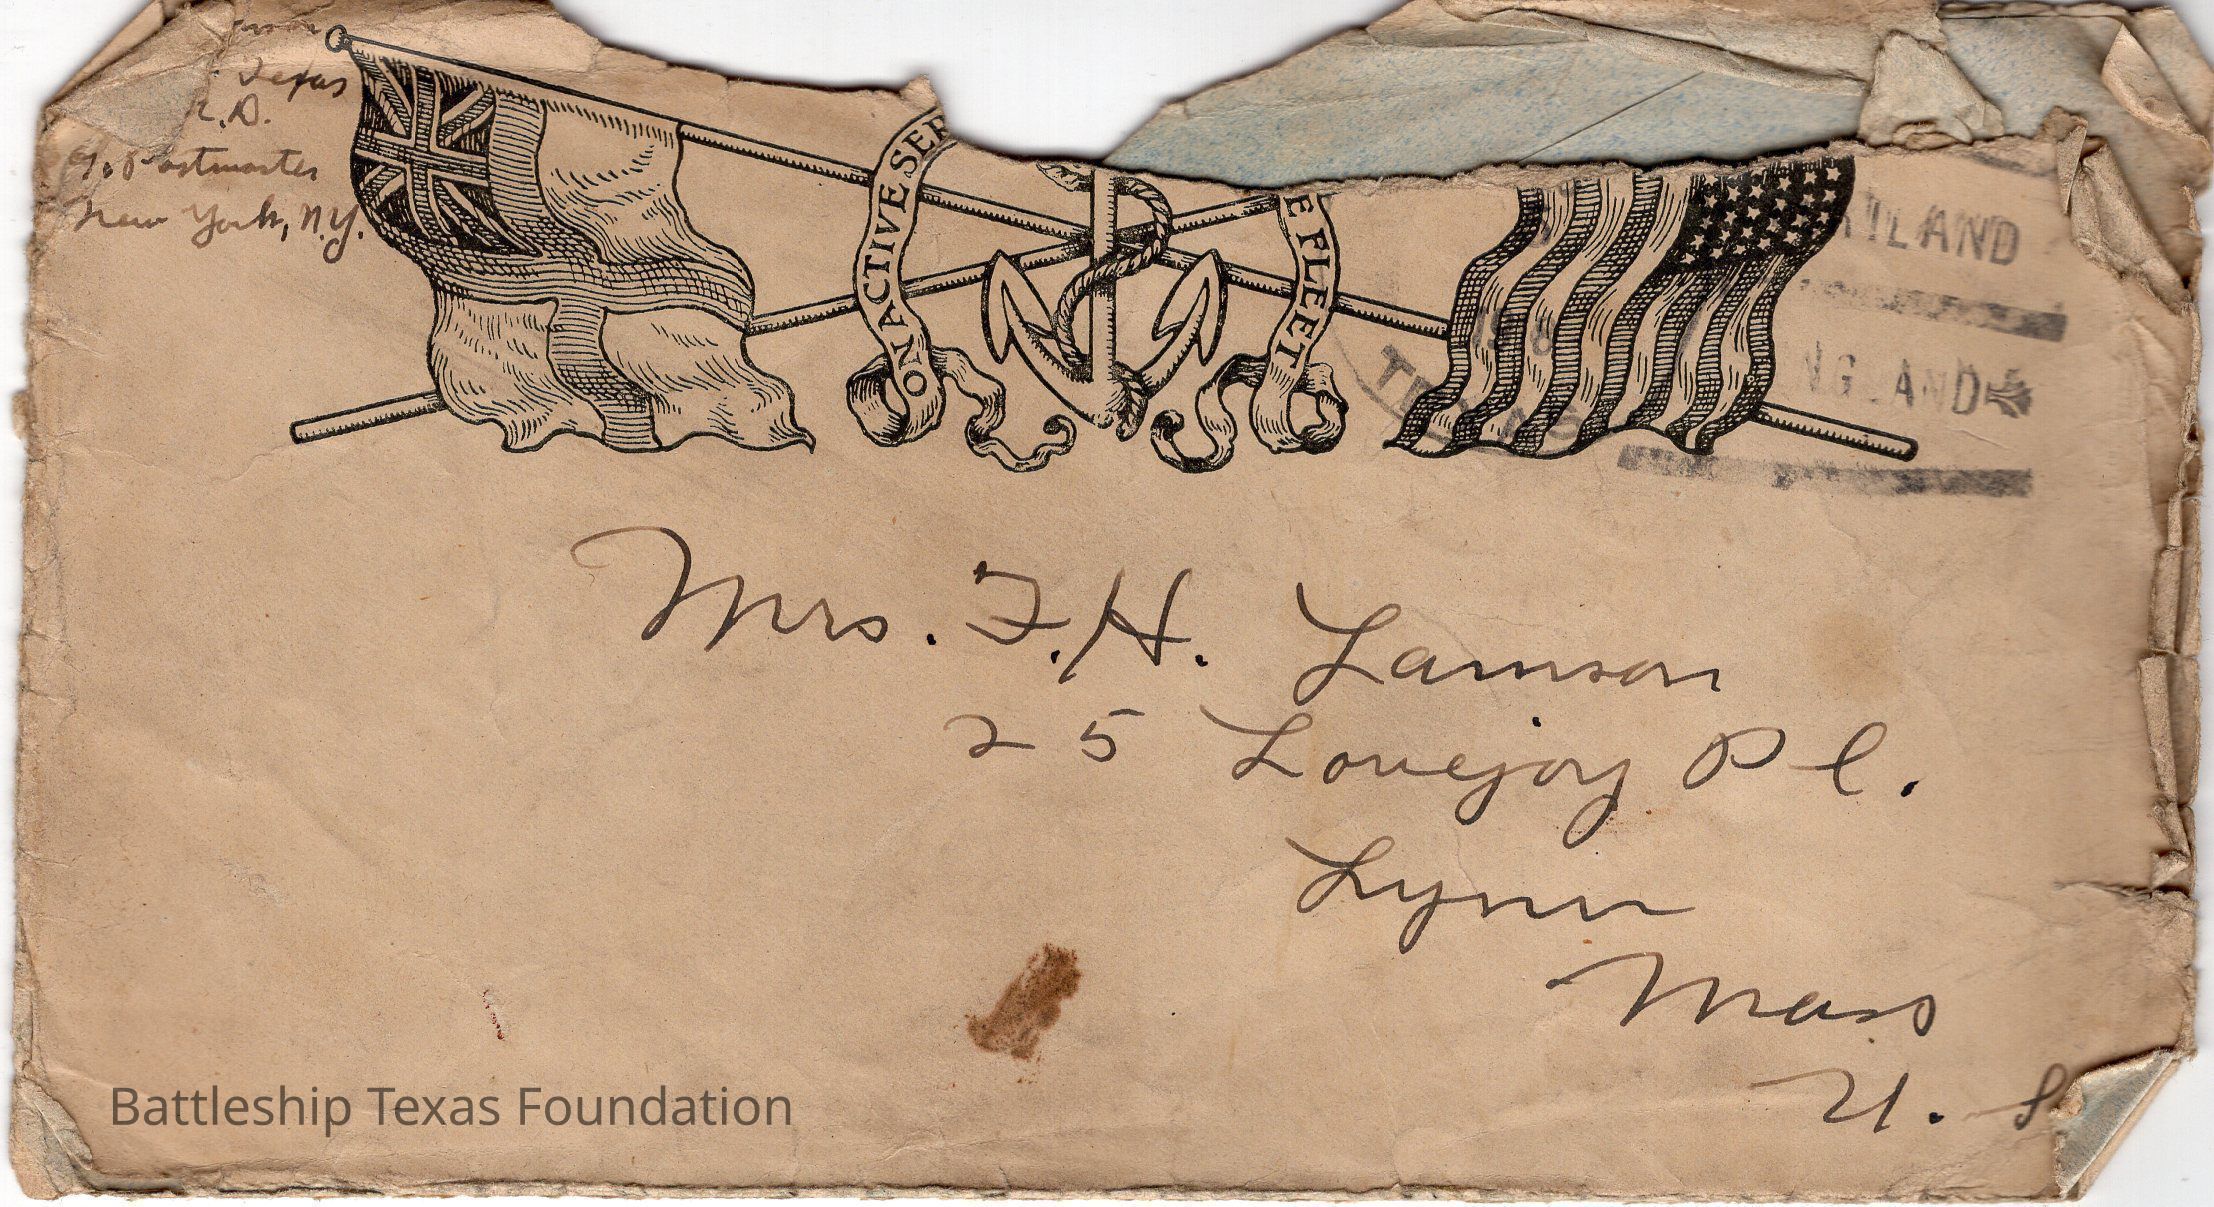 Texas
c/o Postmaster
New York, N.Y.
ON ACTIVE SER
E FLEET
TLAND
NGLAND
TEXAS
Mrs. F.H. Lamson
25 Lovejoy Pl.
Lynn
Mass
U. S
Battleship Texas Foundation